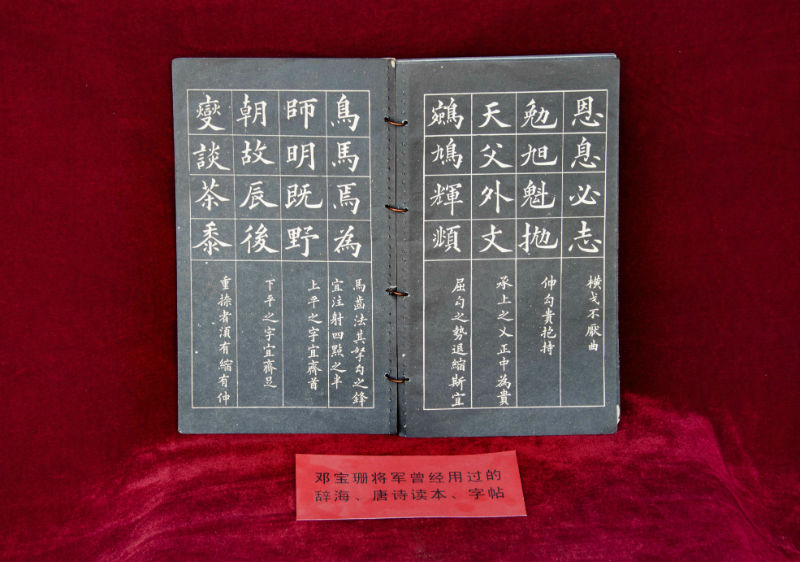 恩息必志
橫戈不厭曲
勉旭魁抛
伸勾貴抱持
天父外丈
承上之乂正中為貴
鳩輝
屈勾之勢退縮斯宜
鳥馬焉為
馬齒法其孥勾之鋒
宜注射四點之半
師明既野
上平之字宜齊首
朝故辰後
下平之字宜齊足
燮談茶黍
重捺者須有縮有伸
邓宝珊将军曾经用过的
辞海、唐诗读本、字帖